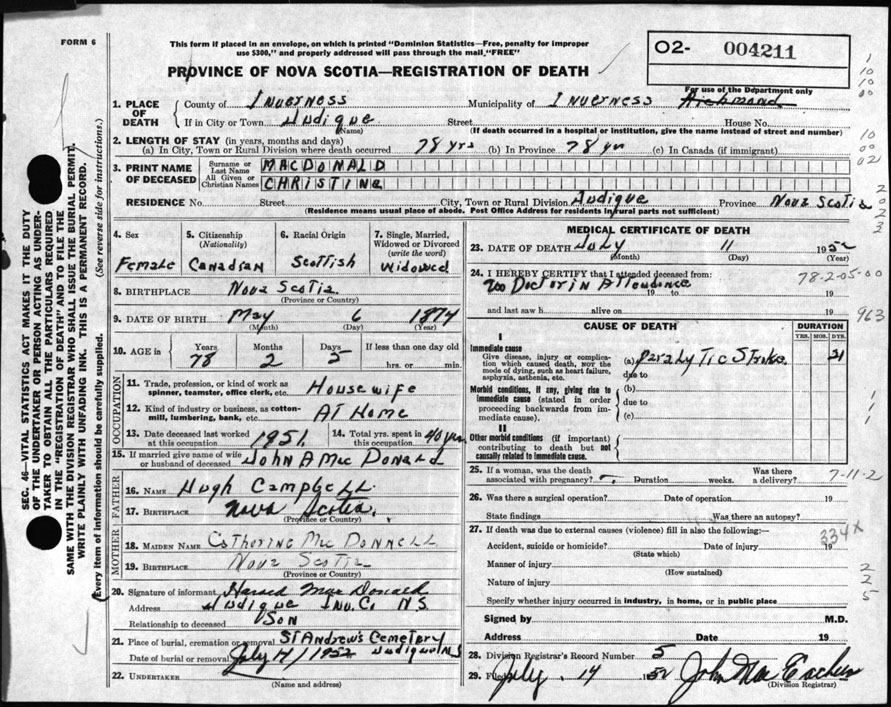 FORM 6
This form if placed in an envelope, on which is printed "Dominion Statistics—Free, penalty for improper
use $300," and properly addressed will pass through the mail "FREE"
O2- 004211
For use of the Department only
PROVINCE OF NOVA SCOTIA—REGISTRATION OF DEATH
1. PLACE OF DEATH County of Inverness Municipality of Inverness Richmond
If in City or Town Judique Street House No.
(Name) (If death occurred in a hospital or institution, give the name instead of street and number)
2. LENGTH OF STAY (in years, months and days)
(a) In City, Town or Rural Division where death occurred 78 yrs (b) In Province 78 yrs (c) In Canada (if immigrant)
3. PRINT NAME OF DECEASED Surname or Last Name MACDONALD
All Given or Christian Names CHRISTINE
RESIDENCE No. Street City, Town or Rural Division Judique Province Nova Scotia
(Residence means usual place of abode. Post Office Address for residents in rural parts not sufficient)
4. Sex Female
5. Citizenship (Nationality) Canadian
6. Racial Origin Scottish
7. Single, Married, Widowed or Divorced (write the word) Widowed
8. BIRTHPLACE Nova Scotia
(Province or Country)
9. DATE OF BIRTH May 6 1874
(Month) (Day) (Year)
10. AGE in Years 78 Months 2 Days 5 If less than one day old hrs. or min.
OCCUPATION
11. Trade, profession, or kind of work as spinner, teamster, office clerk, etc. Housewife
12. Kind of industry or business, as cotton-mill, lumbering, bank, etc. At Home
13. Date deceased last worked at this occupation 1951 14. Total yrs. spent in this occupation 40 yrs
15. If married give name of wife or husband of deceased John A Mac Donald
FATHER
16. NAME Hugh Campbell
17. BIRTHPLACE Nova Scotia
(Province or Country)
MOTHER
18. MAIDEN NAME Catherine Mac Donnell
19. BIRTHPLACE Nova Scotia
(Province or Country)
20. Signature of informant Harold Mac Donald
Address Judique Inv. Co. N.S.
Relationship to deceased Son
21. Place of burial, cremation or removal St Andrew's Cemetery
Date of burial or removal July 14/1952 Judique N.S
22. UNDERTAKER
(Name and address)
MEDICAL CERTIFICATE OF DEATH
23. DATE OF DEATH July 11 1952
(Month) (Day) (Year)
24. I HEREBY CERTIFY that I attended deceased from:
No Doctor in Attendance
19 to 19
78-2-05-00
and last saw h alive on 19
963
CAUSE OF DEATH DURATION
YRS. MOS. DYS.
I
Immediate cause
Give disease, injury or complication which caused death, NOT the mode of dying, such as heart failure, asphyxia, asthenia, etc.
(a) Paralytic Stroke 21
due to
Morbid conditions, if any, giving rise to immediate cause (stated in order proceeding backwards from immediate cause).
(b)
due to
(c)
II
Other morbid conditions (if important) contributing to death but not causally related to immediate cause.
25. If a woman, was the death associated with pregnancy? Duration weeks. Was there a delivery?
7-11-2
26. Was there a surgical operation? Date of operation 19
State findings Was there an autopsy?
27. If death was due to external causes (violence) fill in also the following:—
Accident, suicide or homicide? Date of injury 19
(State which)
334X
Manner of injury
(How sustained)
Nature of injury
Specify whether injury occurred in industry, in home, or in public place
Signed by M.D.
Address Date 19
28. Division Registrar's Record Number 5
29. Filed July 14 1952 John Mac Eachern
(Division Registrar)
SEC. 46—VITAL STATISTICS ACT MAKES IT THE DUTY
OF THE UNDERTAKER OR PERSON ACTING AS UNDER-
TAKER TO OBTAIN ALL THE PARTICULARS REQUIRED
IN THE "REGISTRATION OF DEATH" AND TO FILE THE
SAME WITH THE DIVISION REGISTRAR WHO SHALL ISSUE THE BURIAL PERMIT.
WRITE PLAINLY WITH UNFADING INK. THIS IS A PERMANENT RECORD.
Every item of information should be carefully supplied. (See reverse side for instructions.)
1
10
10
00
10
00
02
2
0
2
3
1
1
2
2
5